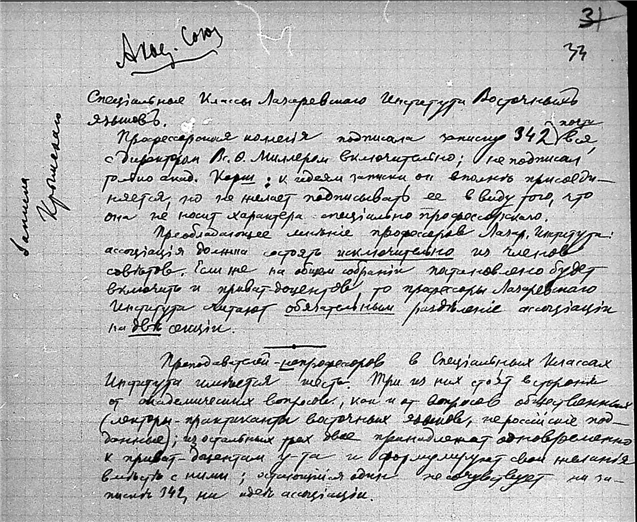 31
33
Акад. Союз
Записка Крымскаго
Спеціальные Классы Лазаревскаго Института Восточныхъ
языковъ.
Профессорская колегія подписала записку 342 почти вся
с Директором Вс. Ѳ. Миллером включительно; не подписал
только акад. Корш: к идеям записки он вполнѣ присоеди-
няется, но не желает подписывать ее в виду того, что
она не носит характера спеціально профессорскаго.
Преобладающее мнѣніе профессоров Лазар. Института:
ассоціація должна состоять исключительно из членов
совѣтов. Если же на общем собраніи постановлено будет
включить и приват-доцентов то професоры Лазаревскаго
Института считают обязательным раздѣленіе ассоціаціи
на двѣ секціи.
Преподавателей-непрофесоров в Спеціальных Классах
Института имѣется шесть. Три из них стоят в сторонѣ
от академических вопросов, как и от вопросов общественных
(лекторы-практиканты восточных языков, не россійскіе под-
данные); из остальных трех двое принадлежат одновременно
к приват-доцентам у-та и формулируют свои желанія
вмѣстѣ с ними; остающійся один не сочувствует ни за-
пискѣ 342, ни идеѣ ассоціаціи.